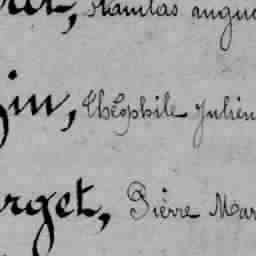 Stanislas augu
in, Théophile Julien
rget, Pierre Mar